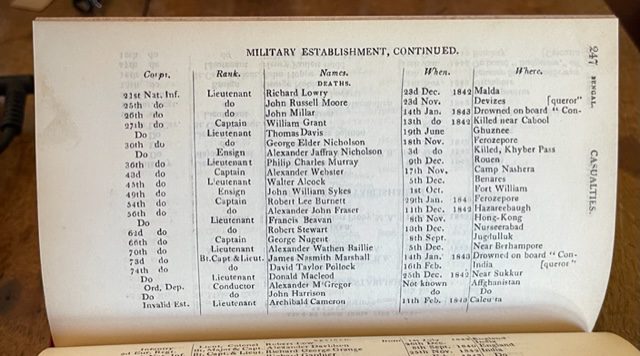 MILITARY ESTABLISHMENT, CONTINUED.
247
BENGAL.
CASUALTIES.
Corps. Rank. Names. When. Where.
DEATHS.
21st Nat. Inf. Lieutenant Richard Lowry 23d Dec. 1842 Malda
25th do do John Russell Moore 23d Nov. Devizes [queror"
26th do do John Millar 14th Jan. 1843 Drowned on board "Con-
27th do Captain William Grant 13th do 1842 Killed near Cabool
Do Lieutenant Thomas Davis 19th June Ghuznee
30th do do George Elder Nicholson 18th Nov. Ferozepore
Do Ensign Alexander Jaffray Nicholson 3d do Killed, Khyber Pass
36th do Lieutenant Philip Charles Murray 9th Dec. Rouen
43d do Captain Alexander Webster 17th Nov. Camp Nashera
45th do Lieutenant Walter Alcock 5th Dec. Benares
49th do Ensign John William Sykes 1st Oct. Fort William
54th do Captain Robert Lee Burnett 29th Jan. 184 Ferozepore
56th do do Alexander John Fraser 11th Dec. 1842 Hazareebaugh
Do Lieutenant Francis Beavan 8th Nov. Hong-Kong
62d do do Robert Stewart 13th Dec. Nusseerabad
66th do Captain George Nugent 8th Sept. Jugdulluk
70th do Lieutenant Alexander Wathen Baillie 5th Dec. Near Berhampore
73d do Bt. Capt & Lieut. James Nasmith Marshall 14th Jan. 1843 Drowned on board "Con-
74th do do David Taylor Pollock 16th Feb. India [queror"
Do Lieutenant Donald Macleod 25th Dec. 1842 Near Sukkur
Ord. Dep. Conductor Alexander M'Gregor Not known Affghanistan
Do do John Harrison do Do
Invalid Est. Lieutenant Archibald Cameron 11th Feb. 1843 Calcutta